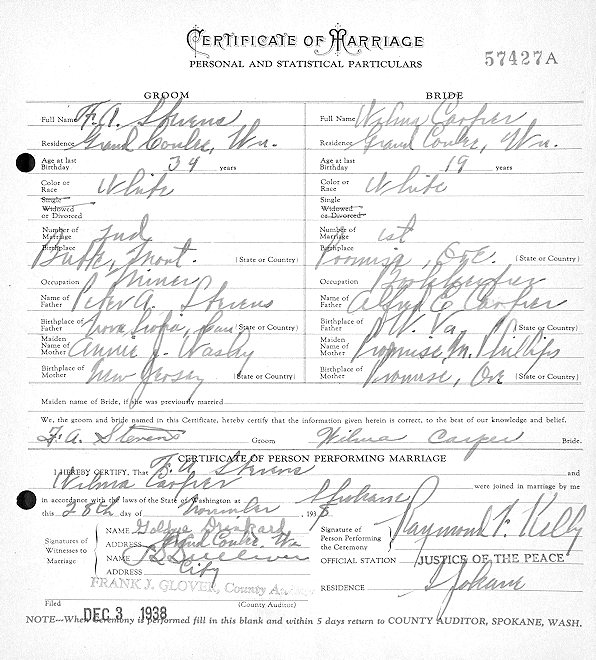 CERTIFICATE OF MARRIAGE
PERSONAL AND STATISTICAL PARTICULARS
57427A
GROOM BRIDE
Full Name F. A. Stevens Full Name Wilma Carper
Residence Grand Coulee, Wn. Residence Grand Coulee, Wn.
Age at last Birthday 34 years Age at last Birthday 19 years
Color or Race White Color or Race White
Single Single
Widowed Widowed
or Divorced or Divorced
Number of Marriage 2nd Number of Marriage 1st
Birthplace Butte, Mont. (State or Country) Birthplace Promise, Ore. (State or Country)
Occupation Miner Occupation Bookkeeper
Name of Father Peter A. Stevens Name of Father Alfred C Carper
Birthplace of Father Nova Scotia, Can Birthplace of Father W. Va.
Maiden Name of Mother Annie J. Maiden Name of Mother M. Phillips
Birthplace of Mother New Jersey (State or Country) Birthplace of Mother Promise, Ore (State or Country)
Maiden name of Bride, if she was previously married
We, the groom and bride named in this Certificate, hereby certify that the information given herein is correct, to the best of our knowledge and belief.
F. A. Stevens Groom Wilma Carper Bride.
CERTIFICATE OF PERSON PERFORMING MARRIAGE
I HEREBY CERTIFY, That F. A. Stevens and
Wilma Carper were joined in marriage by me
in accordance with the laws of the State of Washington at Spokane
this 28th day of November, 1938
Signatures of Witnesses to Marriage
NAME
ADDRESS Grand Coulee, Wn
NAME
ADDRESS City
Signature of Person Performing the Ceremony Raymond F. Kelly
OFFICIAL STATION JUSTICE OF THE PEACE
RESIDENCE Spokane
FRANK J. GLOVER, County Auditor
Filed DEC 3 1938 (County Auditor)
NOTE---When Ceremony is performed fill in this blank and within 5 days return to COUNTY AUDITOR, SPOKANE, WASH.